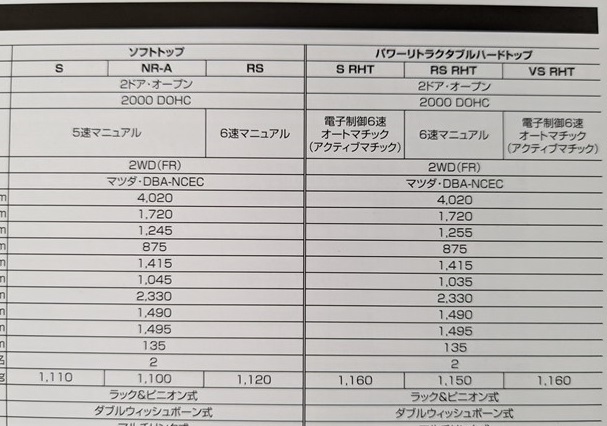 ソフトトップ パワーリトラクタブルハードトップ
S NR-A RS S RHT RS RHT VS RHT
2ドア・オープン 2ドア・オープン
2000 DOHC 2000 DOHC
5速マニュアル 6速マニュアル 電子制御6速オートマチック(アクティブマチック) 6速マニュアル 電子制御6速オートマチック(アクティブマチック)
2WD(FR) 2WD(FR)
マツダ・DBA-NCEC マツダ・DBA-NCEC
m 4,020 4,020
m 1,720 1,720
m 1,245 1,255
m 875 875
m 1,415 1,415
m 1,045 1,035
m 2,330 2,330
m 1,490 1,490
m 1,495 1,495
m 135 135
名 2 2
g 1,110 1,100 1,120 1,160 1,150 1,160
ラック&ピニオン式 ラック&ピニオン式
ダブルウィッシュボーン式 ダブルウィッシュボーン式